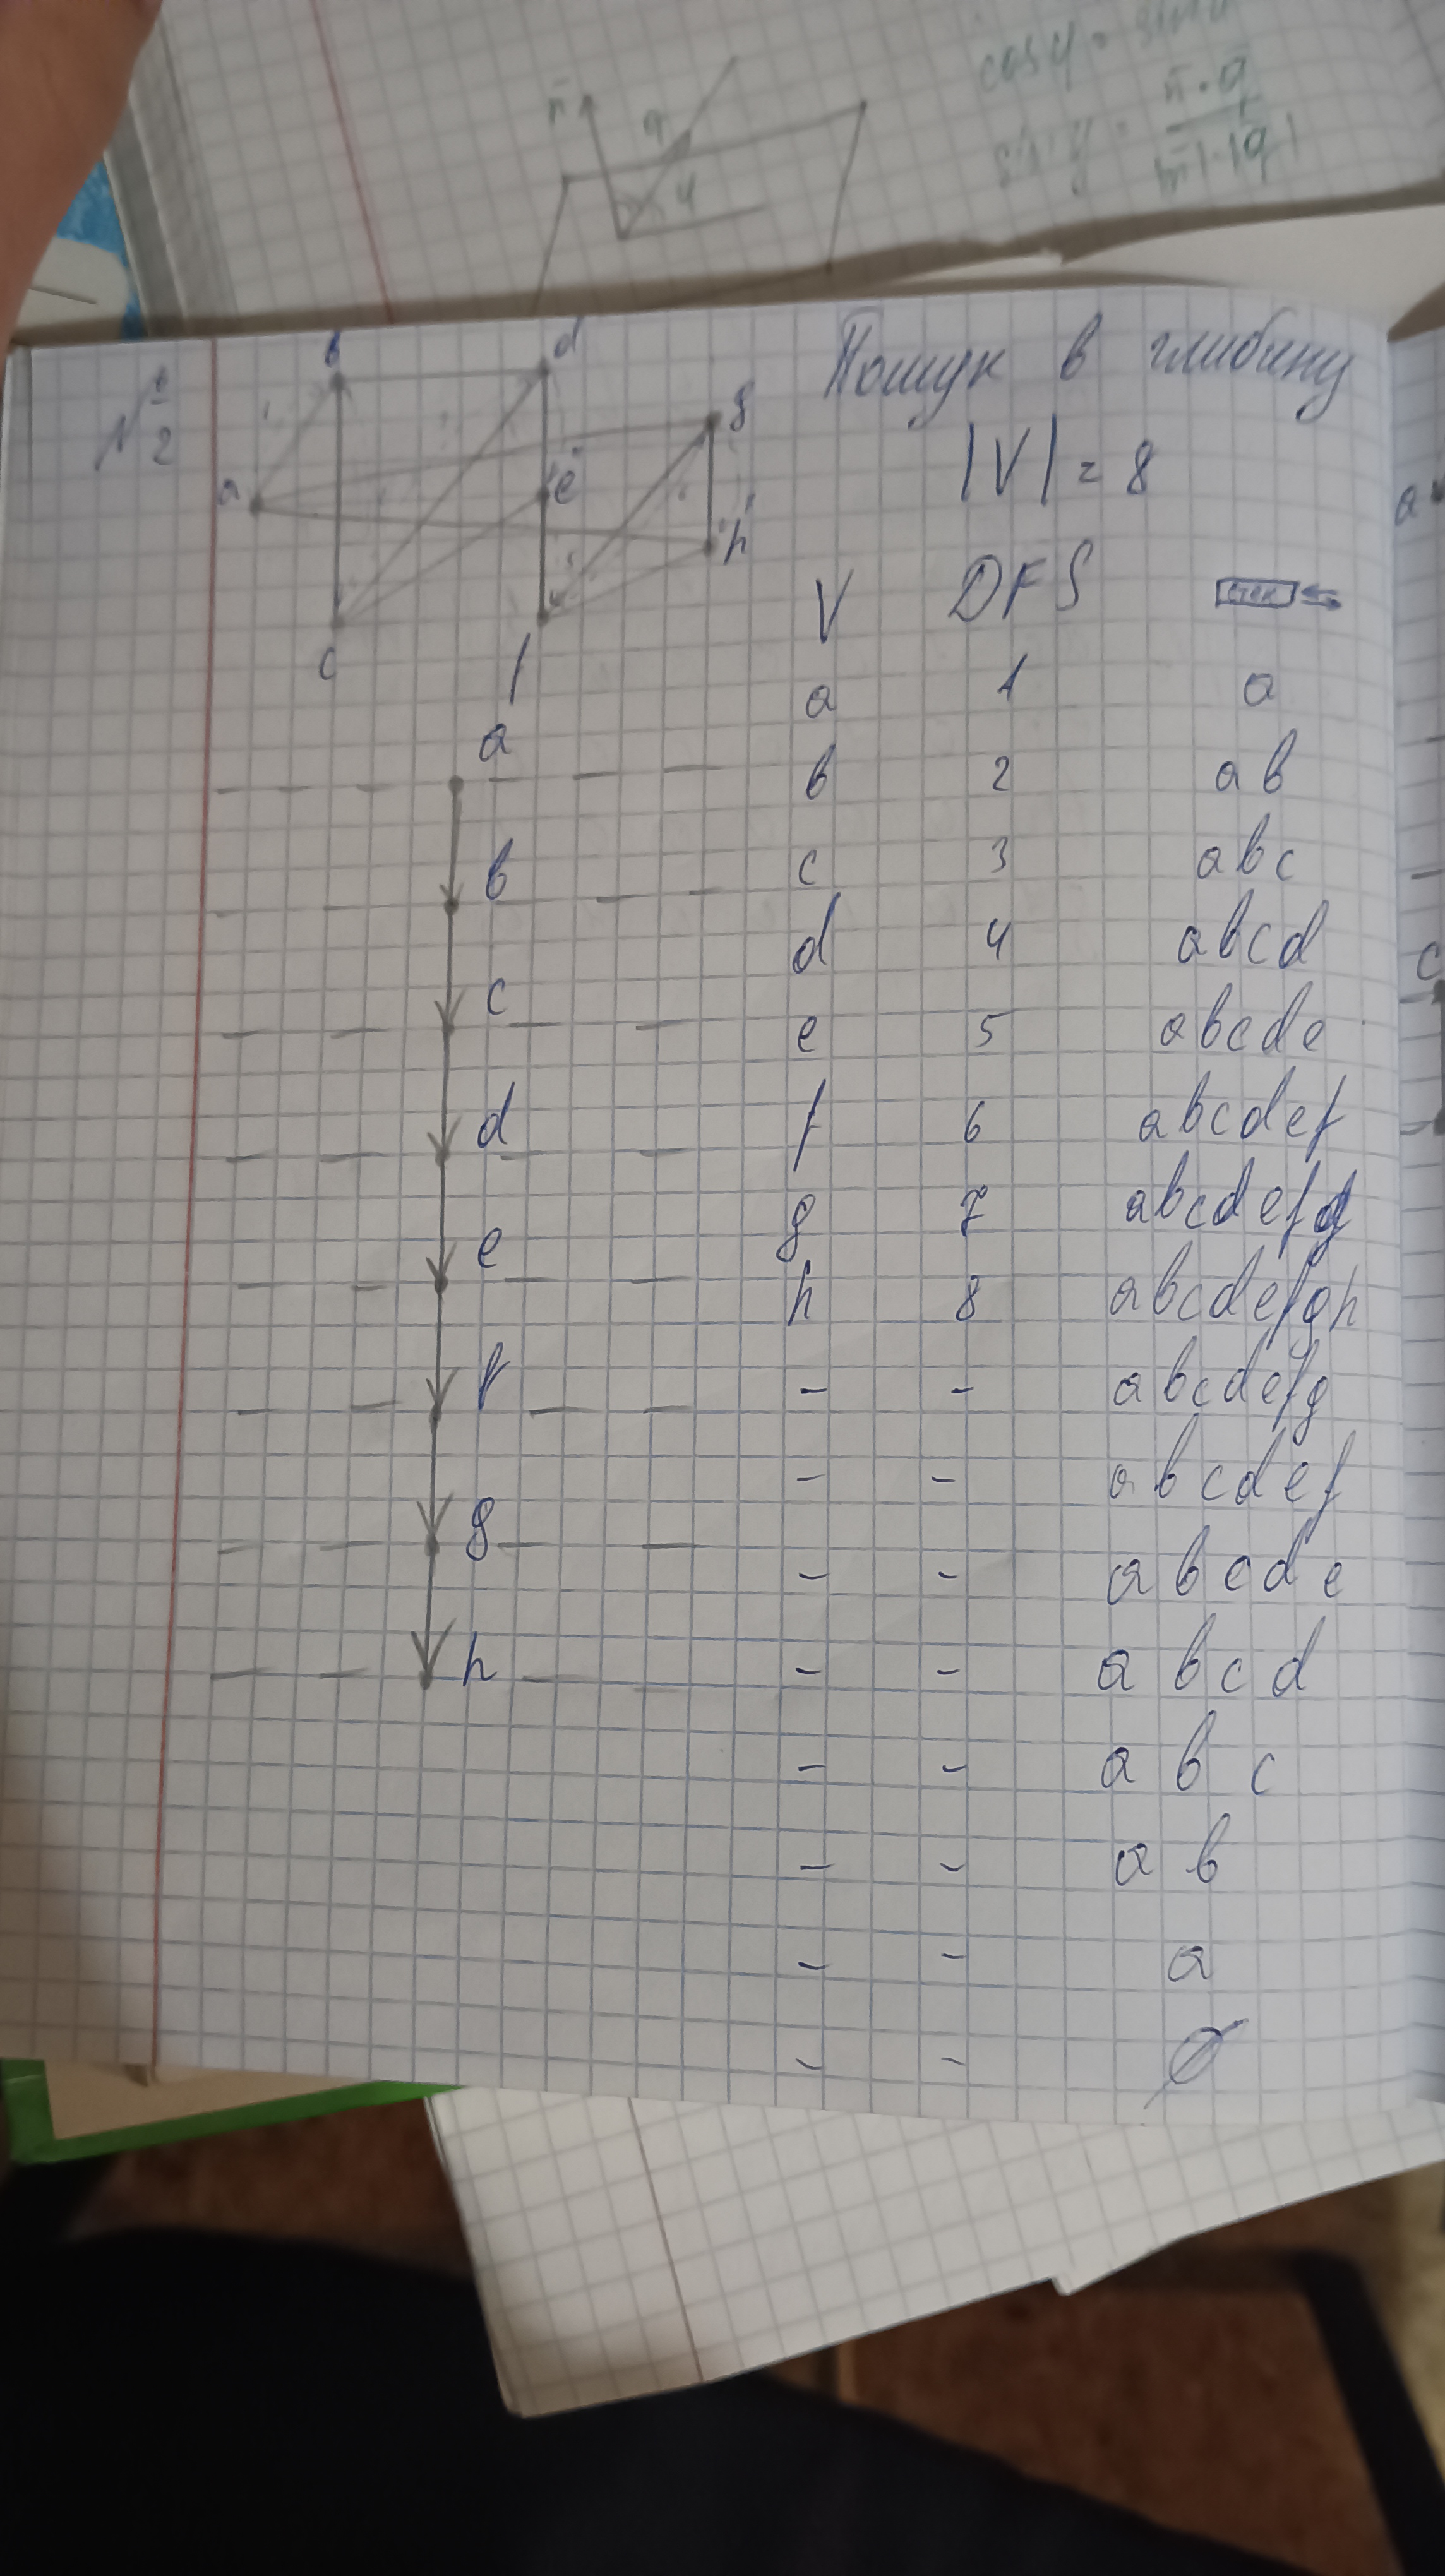 cos φ = sin α
n̄ · q̄
n̄
q
φ
№ 2
Пошук в глибину
b
d
g
a
e
h
c
f
|V| = 8
V DFS стек
a 1 a
b 2 ab
c 3 abc
d 4 abcd
e 5 abcde
f 6 abcdef
g 7 abcdefg
h 8 abcdefgh
- - abcdefg
- - abcdef
- - abcde
- - abcd
- - abc
- - ab
- - a
- - ∅
a
b
c
d
e
f
g
h
a
c